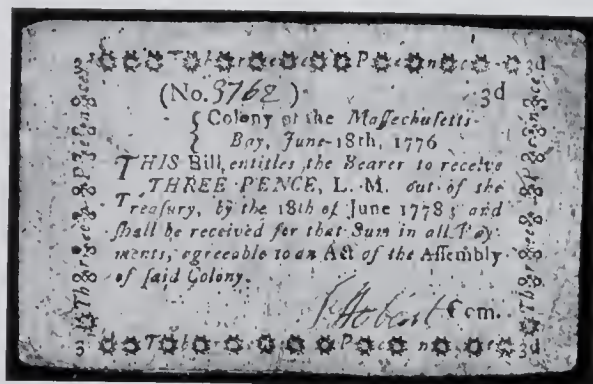 3d T h r e e P e n c e 3d
Three Pence
(No. 3762) 3d
Colony of the Maſſachuſetts
Bay, June 18th, 1776
THIS Bill entitles the Bearer to receive
THREE PENCE, L. M. out of the
Treaſury, by the 18th of June 1778; and
ſhall be received for that Sum in all Pay-
ments, agreeable to an Act of the Aſſembly
of ſaid Colony.
Com.
Three Pence
3d T h r e e P e n c e 3d